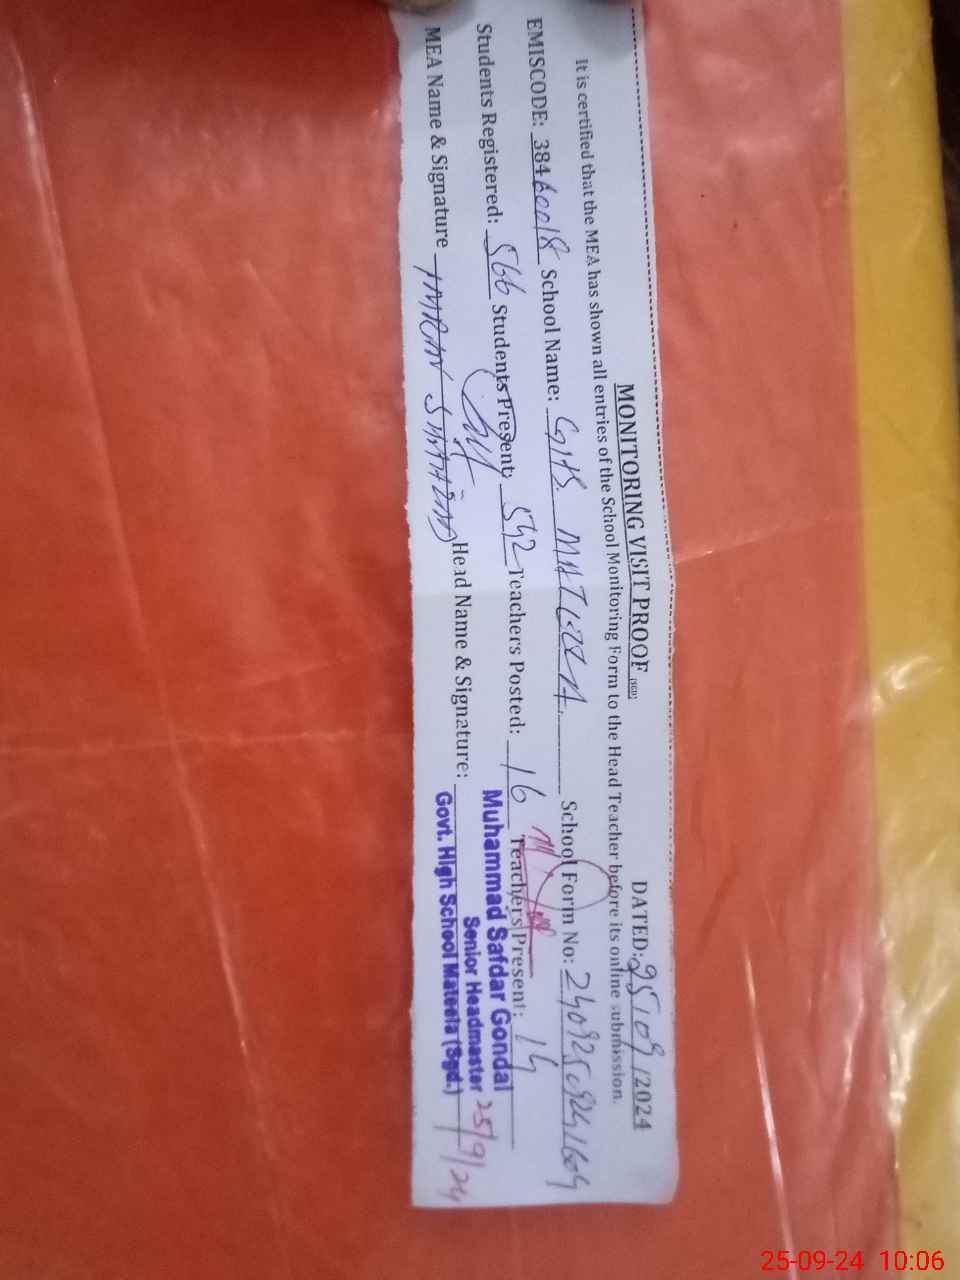 MONITORING VISIT PROOF (SGD) DATED: 25/09/2024
It is certified that the MEA has shown all entries of the School Monitoring Form to the Head Teacher before its online submission.
EMISCODE: 38460018 School Name: GHS. MATEELA. School Form No:
Students Registered: 566 Students Present: 542 Teachers Posted: 16 Teachers Present: 14
MEA Name & Signature IMRAN SHAHZAD Head Name & Signature:
Muhammad Safdar Gondal
Senior Headmaster
Govt. High School Mateela (Sgd.)
25/9/24
25-09-24 10:06